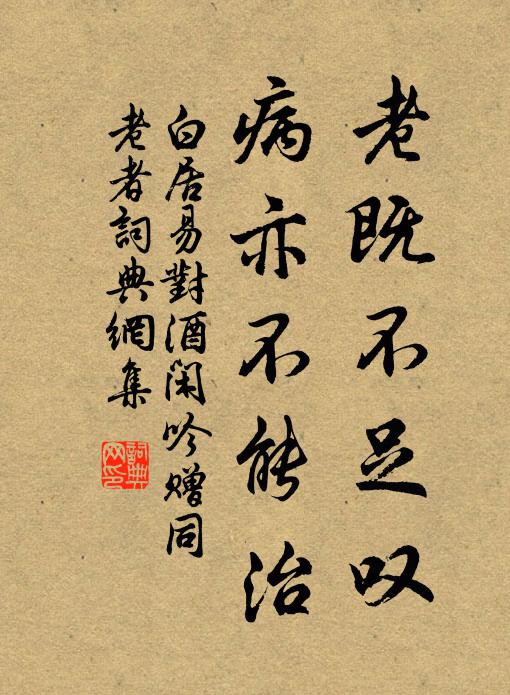 老既不足叹
病亦不能治
白居易對酒閑吟贈同
老者詞典網集
詞典
网印